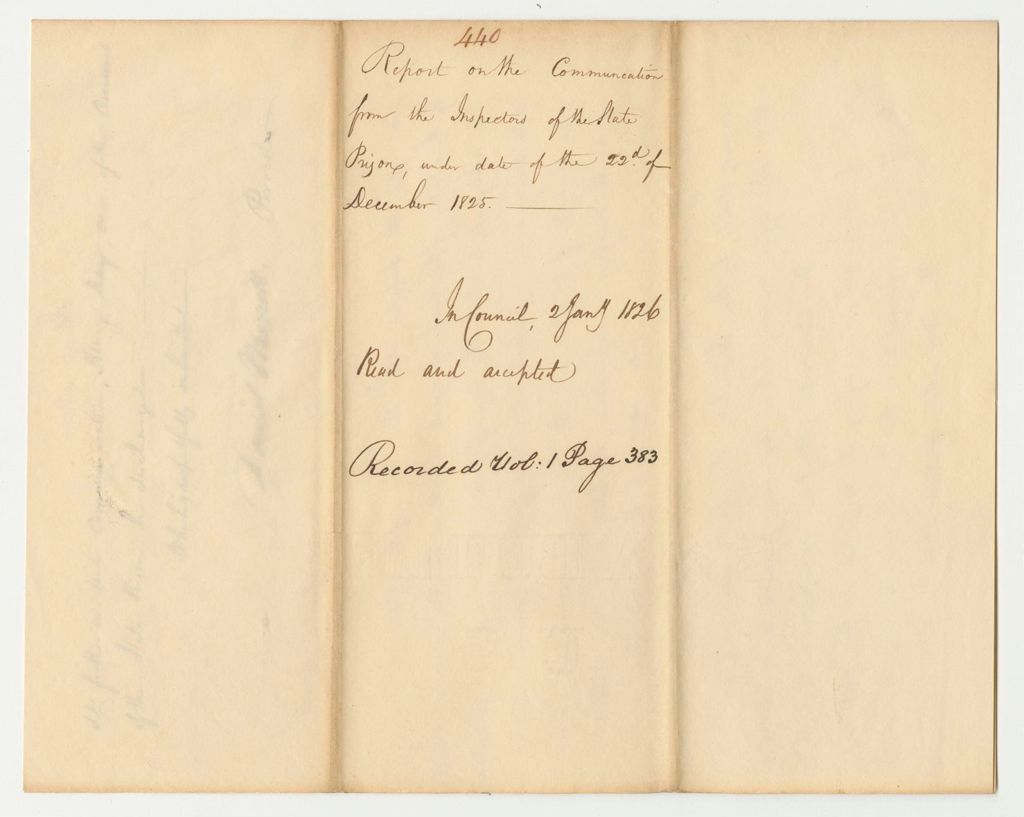 440
Report on the Communication
from the Inspectors of the State
Prison, under date of the 22d of
December 1825.
In Council, 2 Jany 1826
Read and accepted
Recorded Vol: 1 Page 383